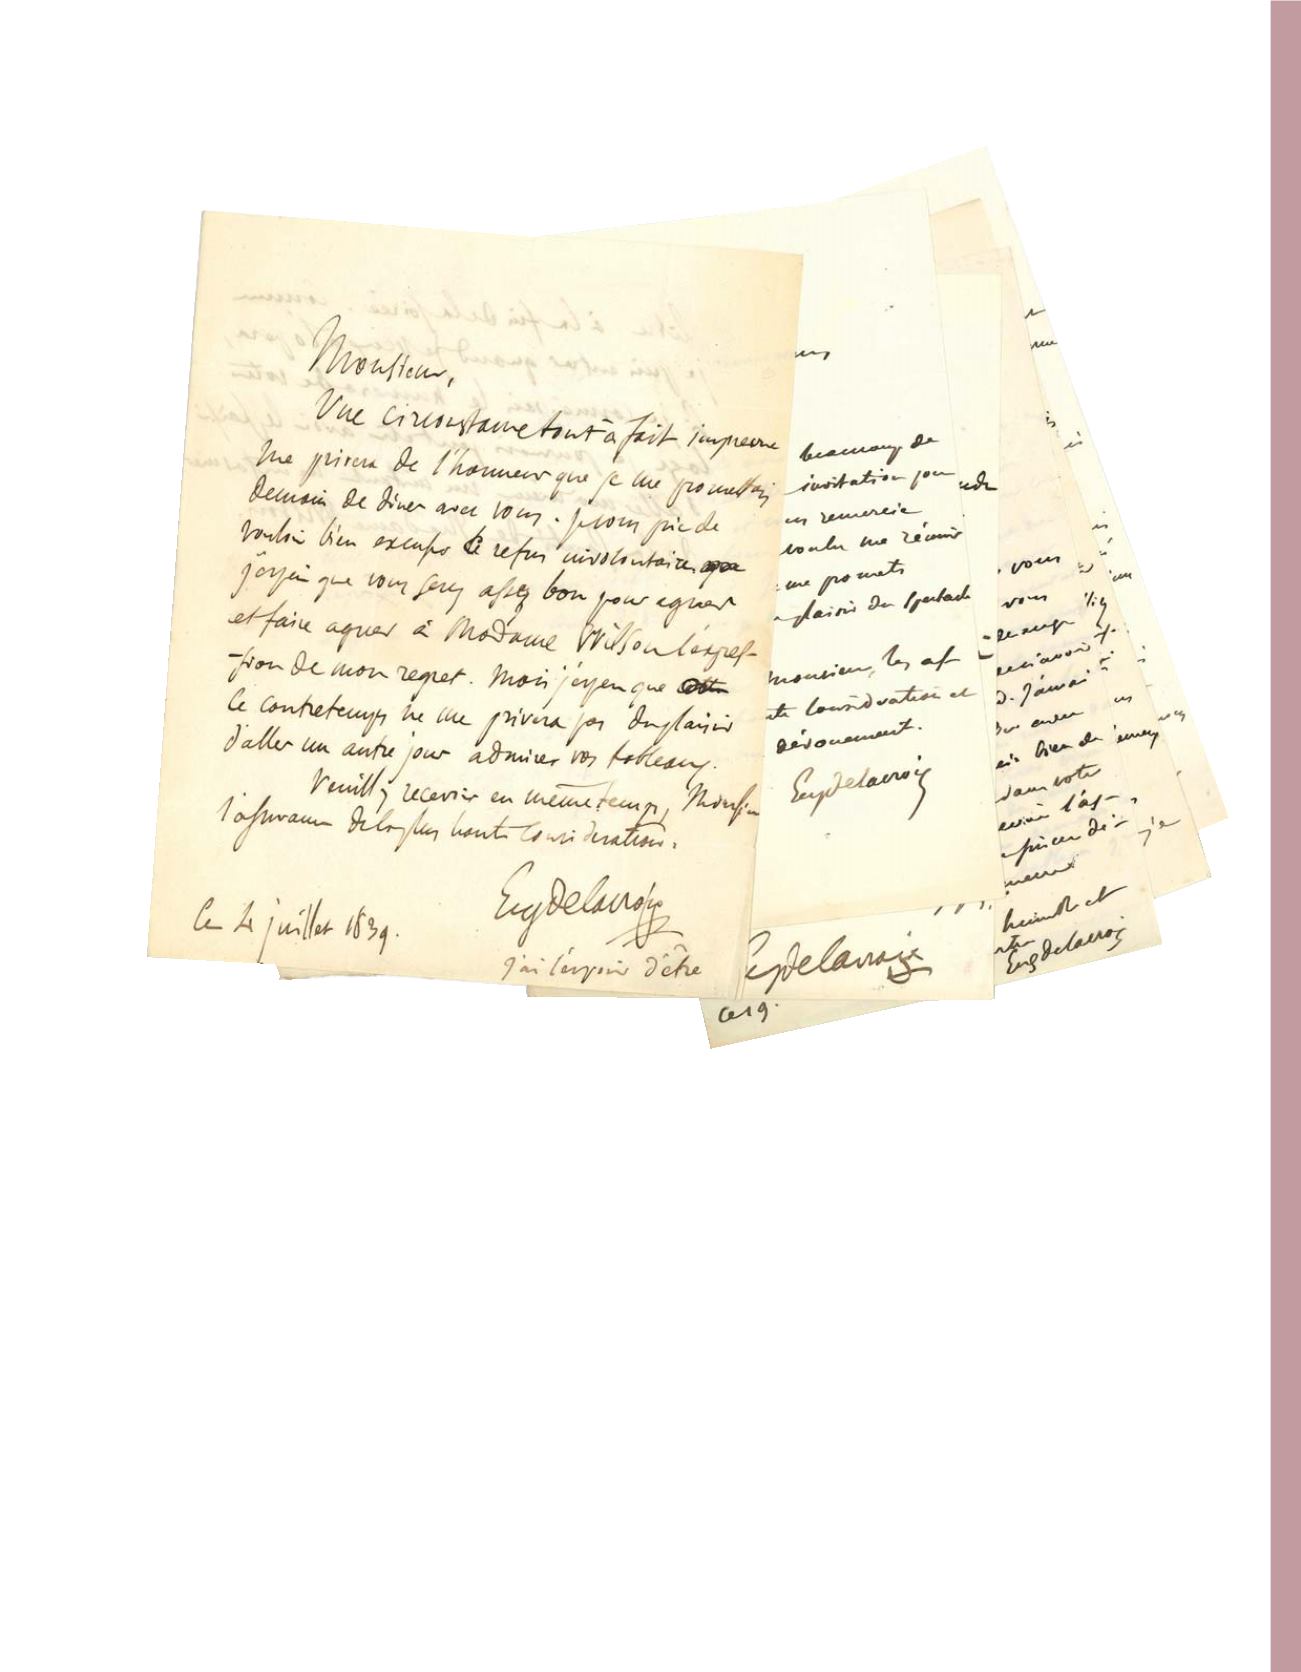 Monsieur,
Une circonstance tout à fait imprevue
me privera de l'honneur que je me promettais
demain de diner avec vous. je vous prie de
vouloir bien excuser ce refus involontaire
j'espère que vous serez assez bon pour agréer
et faire agréer à Madame Wilson l'expres-
-sion de mon regret. Mais j'espère que
ce contretemps ne me privera pas du plaisir
d'aller un autre jour admirer vos tableaux.
Veuillez recevoir en même temps, Monsieur
l'assurance de la plus haute consideration.
EugDelacroix
Ce 4 juillet 1839.
J'ai l'espoir d'être
beaucoup de
invitation pour
remercie
voulu me réunir
me promets
plaisir du spectacle
Monsieur, les as
consideration et
dévouement.
EugDelacroix
EugDelacroix
ce 19.
vous
vous
j'aurai
bien de
dans votre
l'as-
humble et
EugDelacroix
je